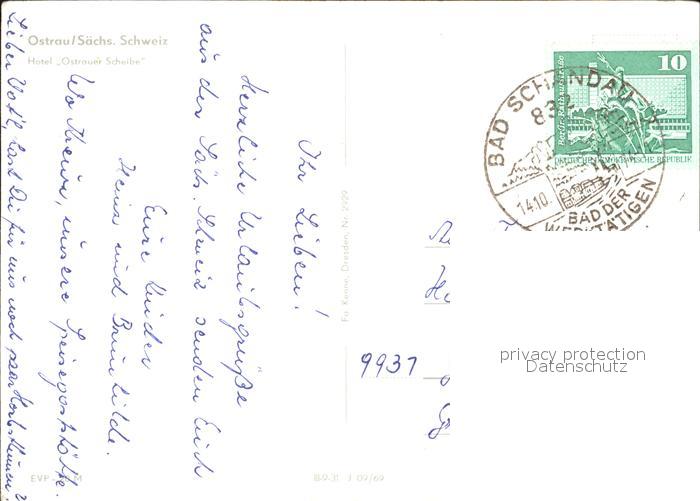 Ostrau/Sächs. Schweiz
Hotel „Ostrauer Scheibe"
Ihr Lieben!
Herzliche Urlaubsgrüße
aus der Sächs. Schweiz senden Euch
Eure Kinder
Heinz und Brunhilde.
Wo Kreuz, unsere Speisegaststätte.
Lieber Vati, hast Du für uns noch paar Herbstblumen?
Fa Krenn, Dresden, Nr. 2929
EVP M
III-9-31 J 09/69
10
DEUTSCHE DEMOKRATISCHE REPUBLIK
BAD SCHANDAU
83
14.10.
BAD DER
WERKTÄTIGEN
9937
privacy protection
Datenschutz